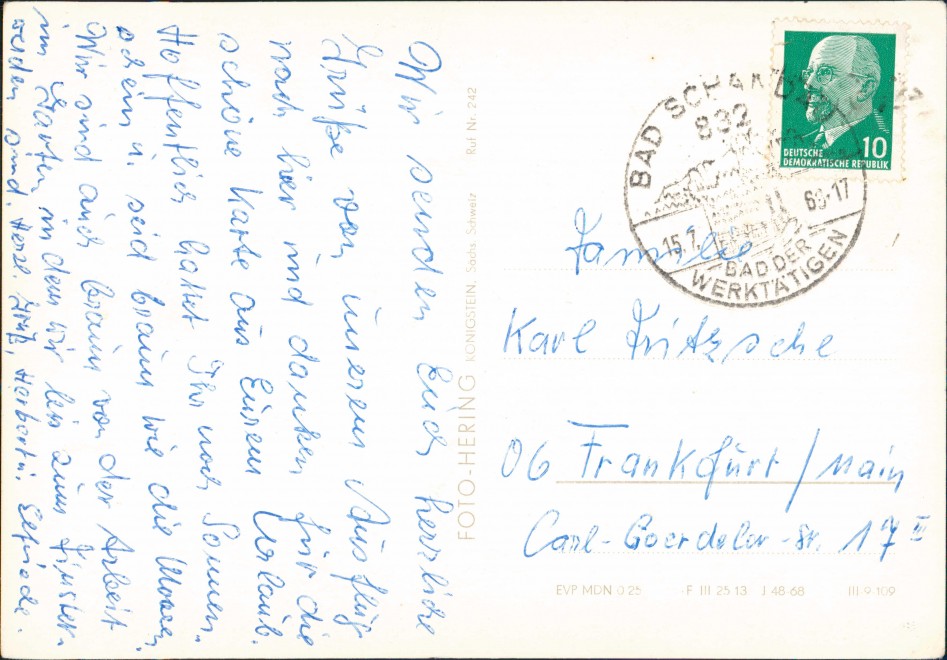 Wir senden Euch herzliche
Grüße von unserem Ausflug
nach hier und danken für die
schöne Karte aus Eurem Urlaub.
Hoffentlich hattet Ihr noch Sonnen-
schein u. seid braun wie die Mooren.
Wir sind auch braun von der Arbeit
im Garten, in dem wir bis zum Finster-
werden sind. Herzl. Grüß. Herbert u. Elfriede.
FOTO-HERING KÖNIGSTEIN, Sächs. Schweiz Ruf Nr. 242
BAD SCHANDAU
832
15.7. 69-17
BAD DER
WERKTÄTIGEN
10
DEUTSCHE
DEMOKRATISCHE REPUBLIK
Familie
Karl Fritzsche
06 Frankfurt / Main
Carl-Goerdeler-Str. 17 II
EVP MDN 0.25 F III 25 13 J 48-68 III 9-109